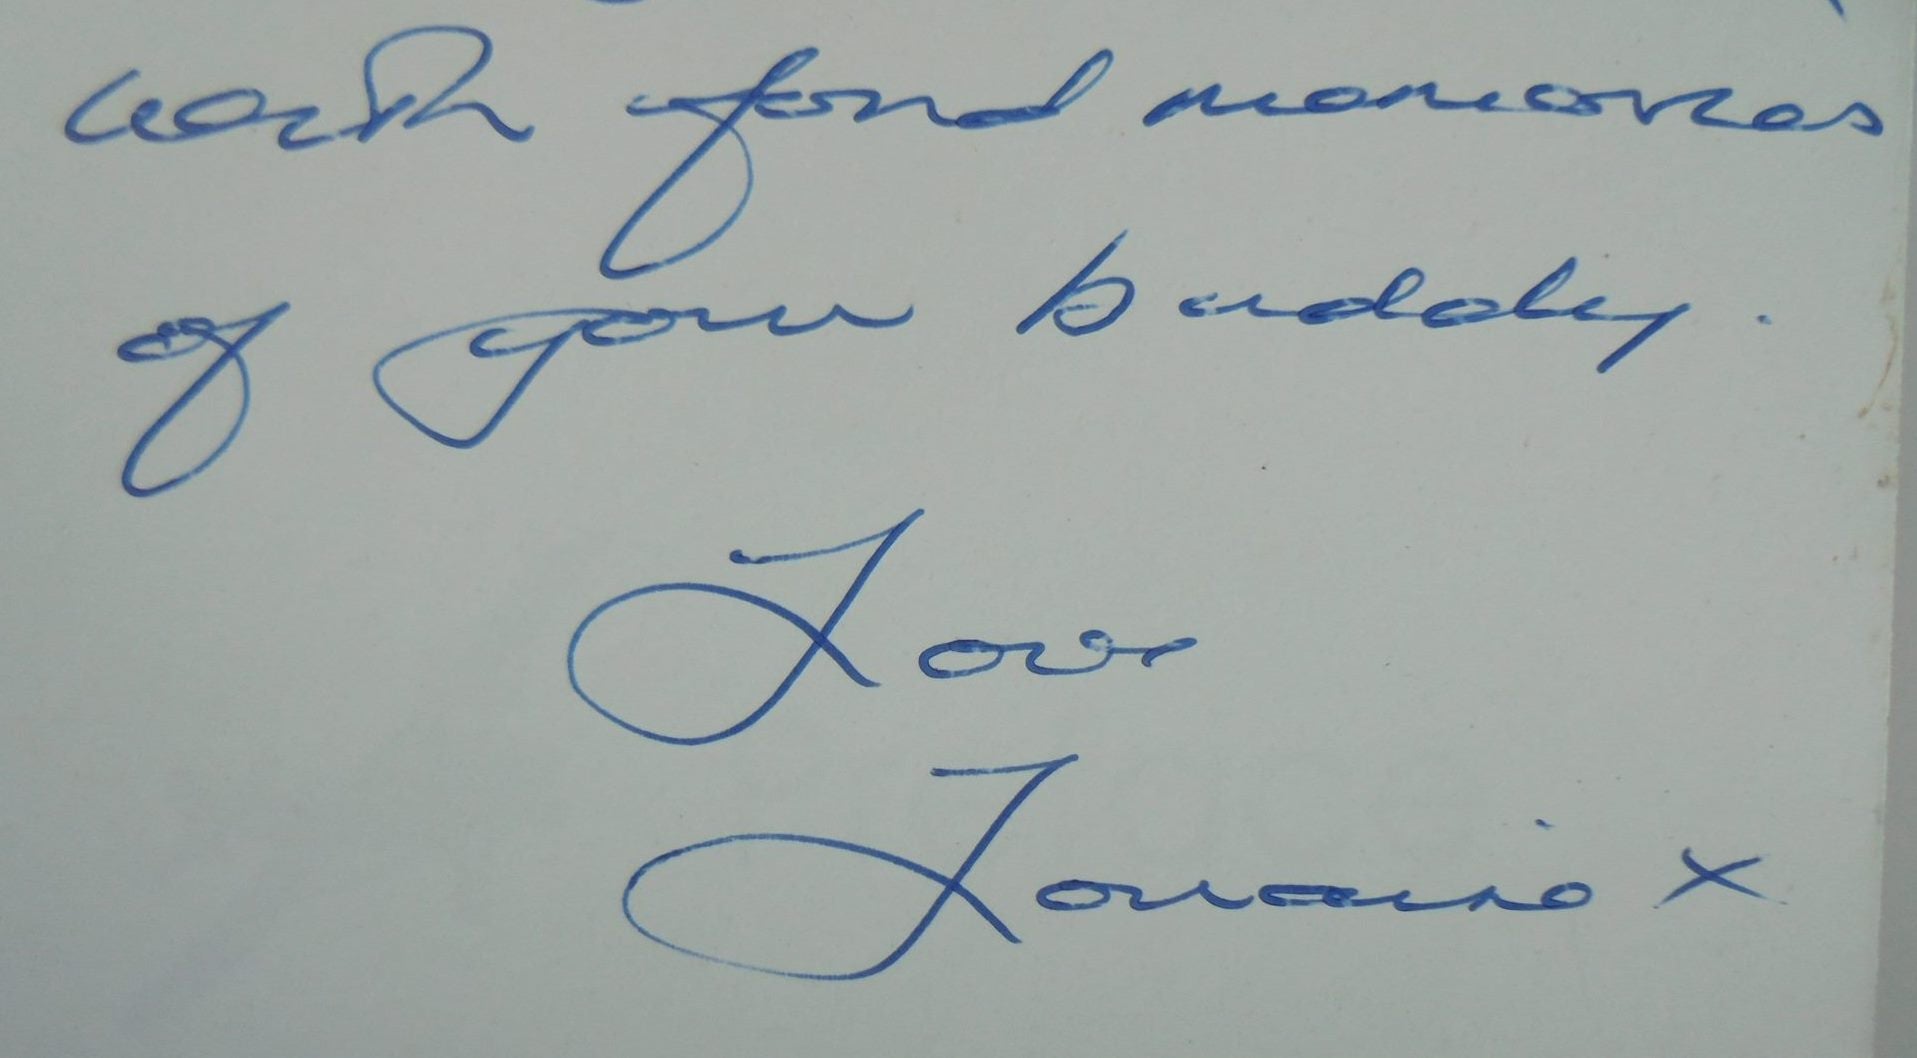 with fond memories
of your buddy.
Love
Lorraine x